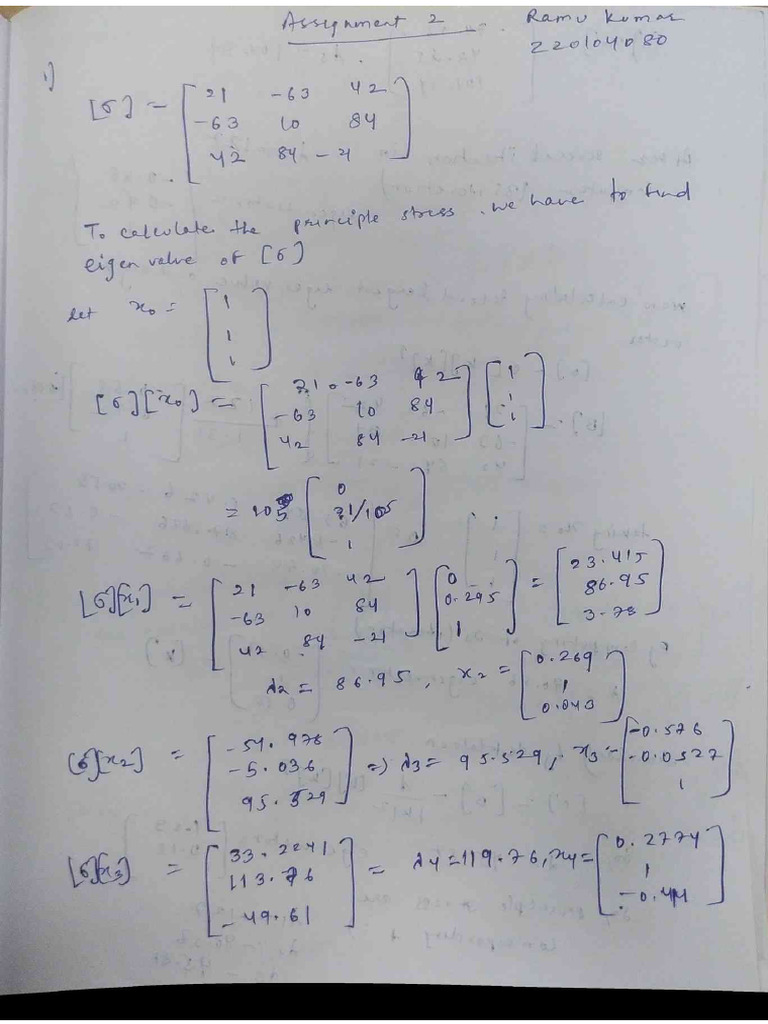 Assignment 2
Ramu Kumar
220104080
1)
[σ] = [ 21 -63 42
-63 10 84
42 84 -21 ]
To calculate the principle stress, we have to find
eigen value of [σ]
let x₀ = [ 1
1
1 ]
[σ][x₀] = [ 21 -63 42
-63 10 84
42 84 -21 ] [ 1
1
1 ]
= 105 [ 0
31/105
1 ]
[σ][x₁] = [ 21 -63 42
-63 10 84
42 84 -21 ] [ 0
0.295
1 ] = [ 23.415
86.95
3.78 ]
λ₂ = 86.95, x₂ = [ 0.269
1
0.043 ]
[σ][x₂] = [ -54.976
-5.036
95.529 ] => λ₃ = 95.529, x₃ = [ -0.576
-0.0527
1 ]
[σ][x₃] = [ 33.2241
113.76
-49.61 ] = λ₄ = 119.76, x₄ = [ 0.2774
1
-0.44 ]